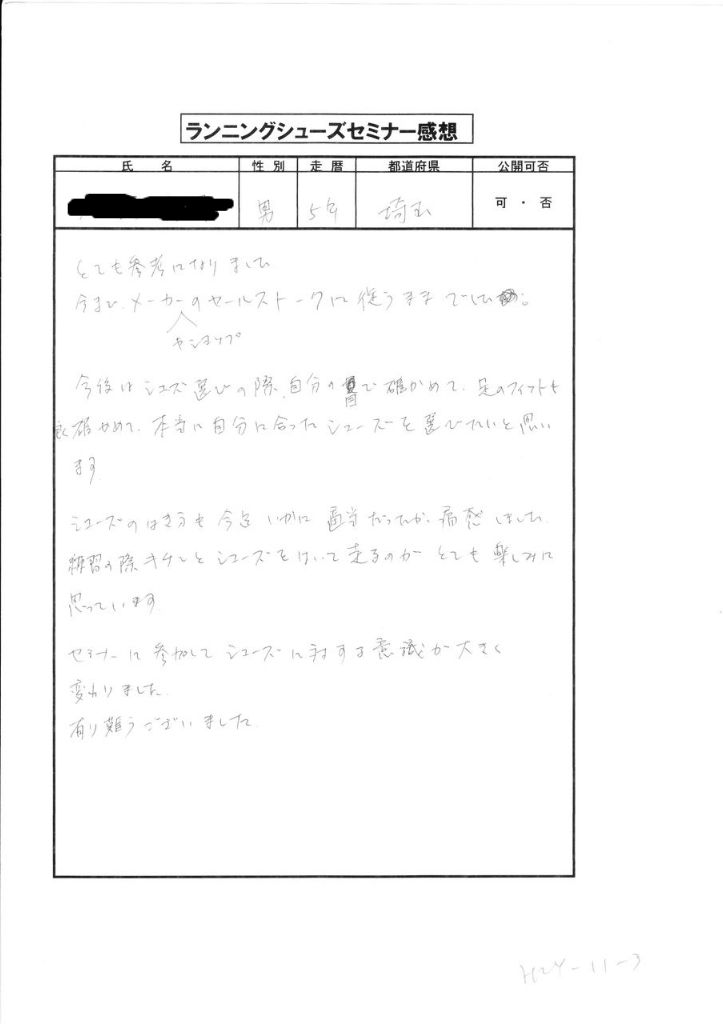 ランニングシューズセミナー感想
氏 名 性 別 走 暦 都道府県 公開可否
男 5年 埼玉 可 ・ 否
とても参考になりました
今まで、メーカーのセールストークに従うままでした。
やショップ
今後はシューズ選びの際、自分の目で確かめて、足のフィットも
確かめて、本当に自分に合ったシューズを選びたいと思い
ます
シューズのはき方も今迄いかに適当だったか、痛感しました
練習の際キチンとシューズをはいて走るのがとても楽しみに
思っています
セミナーに参加してシューズに対する意識が大きく
変わりました
有り難うございました
H24-11-3